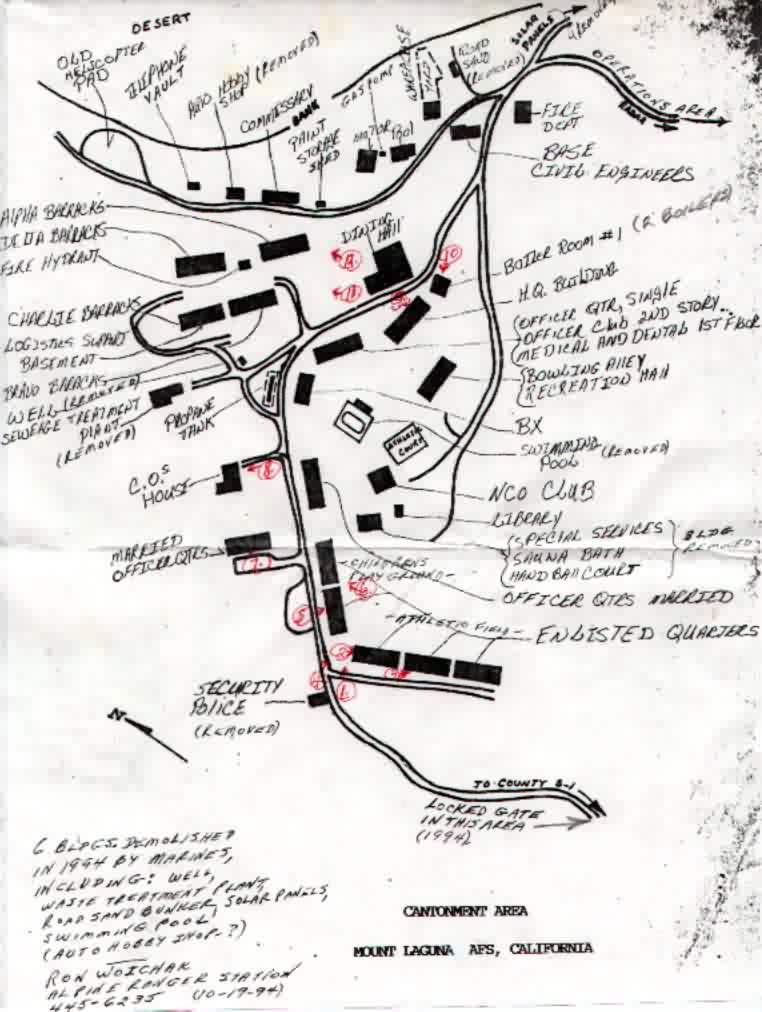 DESERT
OLD
HELICOPTER
PAD
TELEPHONE
VAULT
AUTO HOBBY (REMOVED)
SHOP
COMMISSARY
BANK
PAINT
STORAGE
SHED
GAS PUMP
MOTOR POOL
WAREHOUSE
YARD
ROAD
SAND
(REMOVED)
SOLAR
PANELS
(REMOVED)
OPERATIONS AREA
FIRE
DEPT
BASE
CIVIL ENGINEERS
ALPHA BARRACKS
DELTA BARRACKS
FIRE HYDRANT
CHARLIE BARRACKS
LOGISTICS SUPPORT
BASEMENT
BRAVO BARACKS
WELL (REMOVED)
SEWERAGE TREATMENT
PLANT
(REMOVED)
PROPANE
TANK
DINING
HALL
10
BOILER ROOM #1 (2 BOILERS)
H.Q. BUILDING
(OFFICER QTR, SINGLE
OFFICER CLUB 2ND STORY
MEDICAL AND DENTAL 1ST FLOOR
BOWLING ALLEY
RECREATION HALL
BX
SWIMMING (REMOVED)
POOL
COURT
NCO CLUB
LIBRARY
(SPECIAL SERVICES
SAUNA BATH
HAND BALL COURT
BLDG
REMOVED
C.O.S
HOUSE
8
MARRIED
OFFICER QTRS
7
-CHILDRENS
PLAYGROUND-
6
OFFICER QTRS MARRIED
5
-ATHLETIC FIELD-
ENLISTED QUARTERS
SECURITY
POLICE
(REMOVED)
N
TO COUNTY S-1
LOCKED GATE
IN THIS AREA
(1994)
6 BLDGS. DEMOLISHED
IN 1994 BY MARINES,
INCLUDING: WELL,
WASTE TREATMENT PLANT,
ROAD SAND BUNKER, SOLAR PANELS,
SWIMMING POOL,
(AUTO HOBBY SHOP-?)
RON WOICHAK
ALPINE RANGER STATION
445-6235 (10-19-94)
CANTONMENT AREA
MOUNT LAGUNA AFS, CALIFORNIA